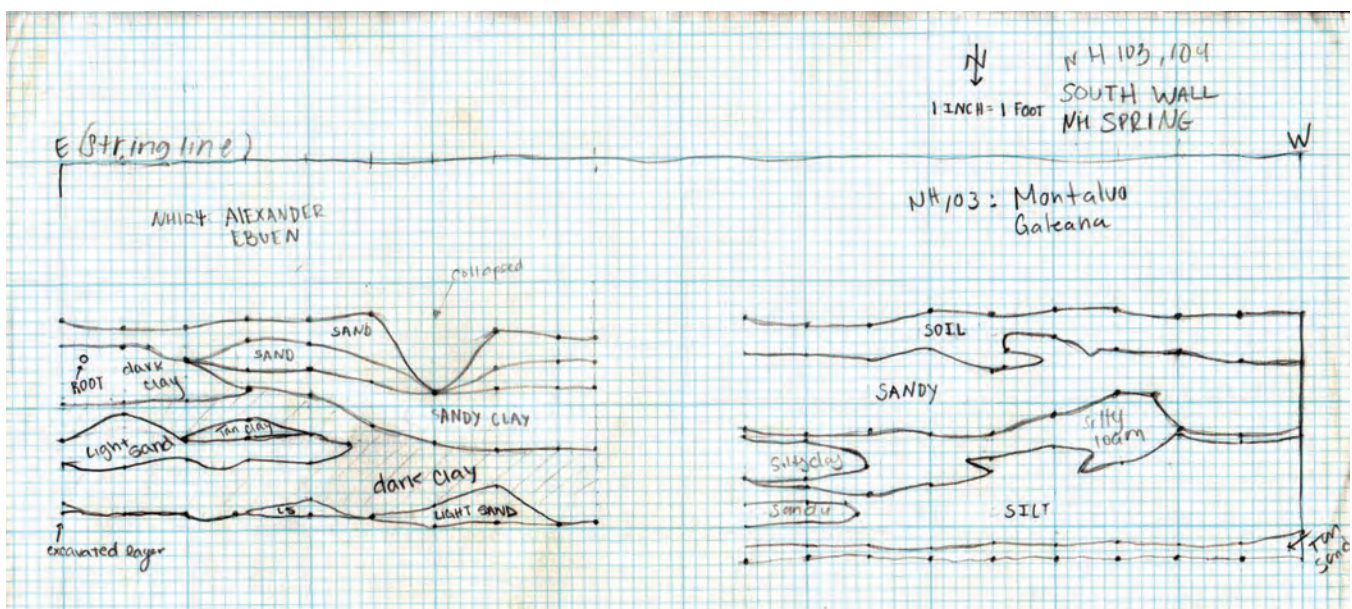 N
1 INCH = 1 FOOT
NH 103, 104
SOUTH WALL
NH SPRING
E (String line)
W
NH104 ALEXANDER
EBUEN
NH103: Montalvo
Galeana
Collapsed
SAND
SAND
ROOT
dark
clay
SANDY CLAY
Light
Sand
Tan clay
dark clay
LS
LIGHT SAND
excavated layer
SOIL
SANDY
Silty
loam
Silty clay
Sandy
SILT
Tan
Sand